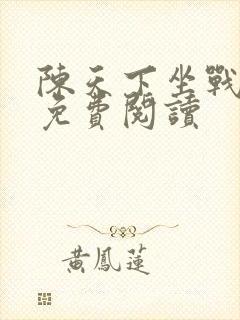 陳天下坐戰
免費閱讀
黃鳳蓮